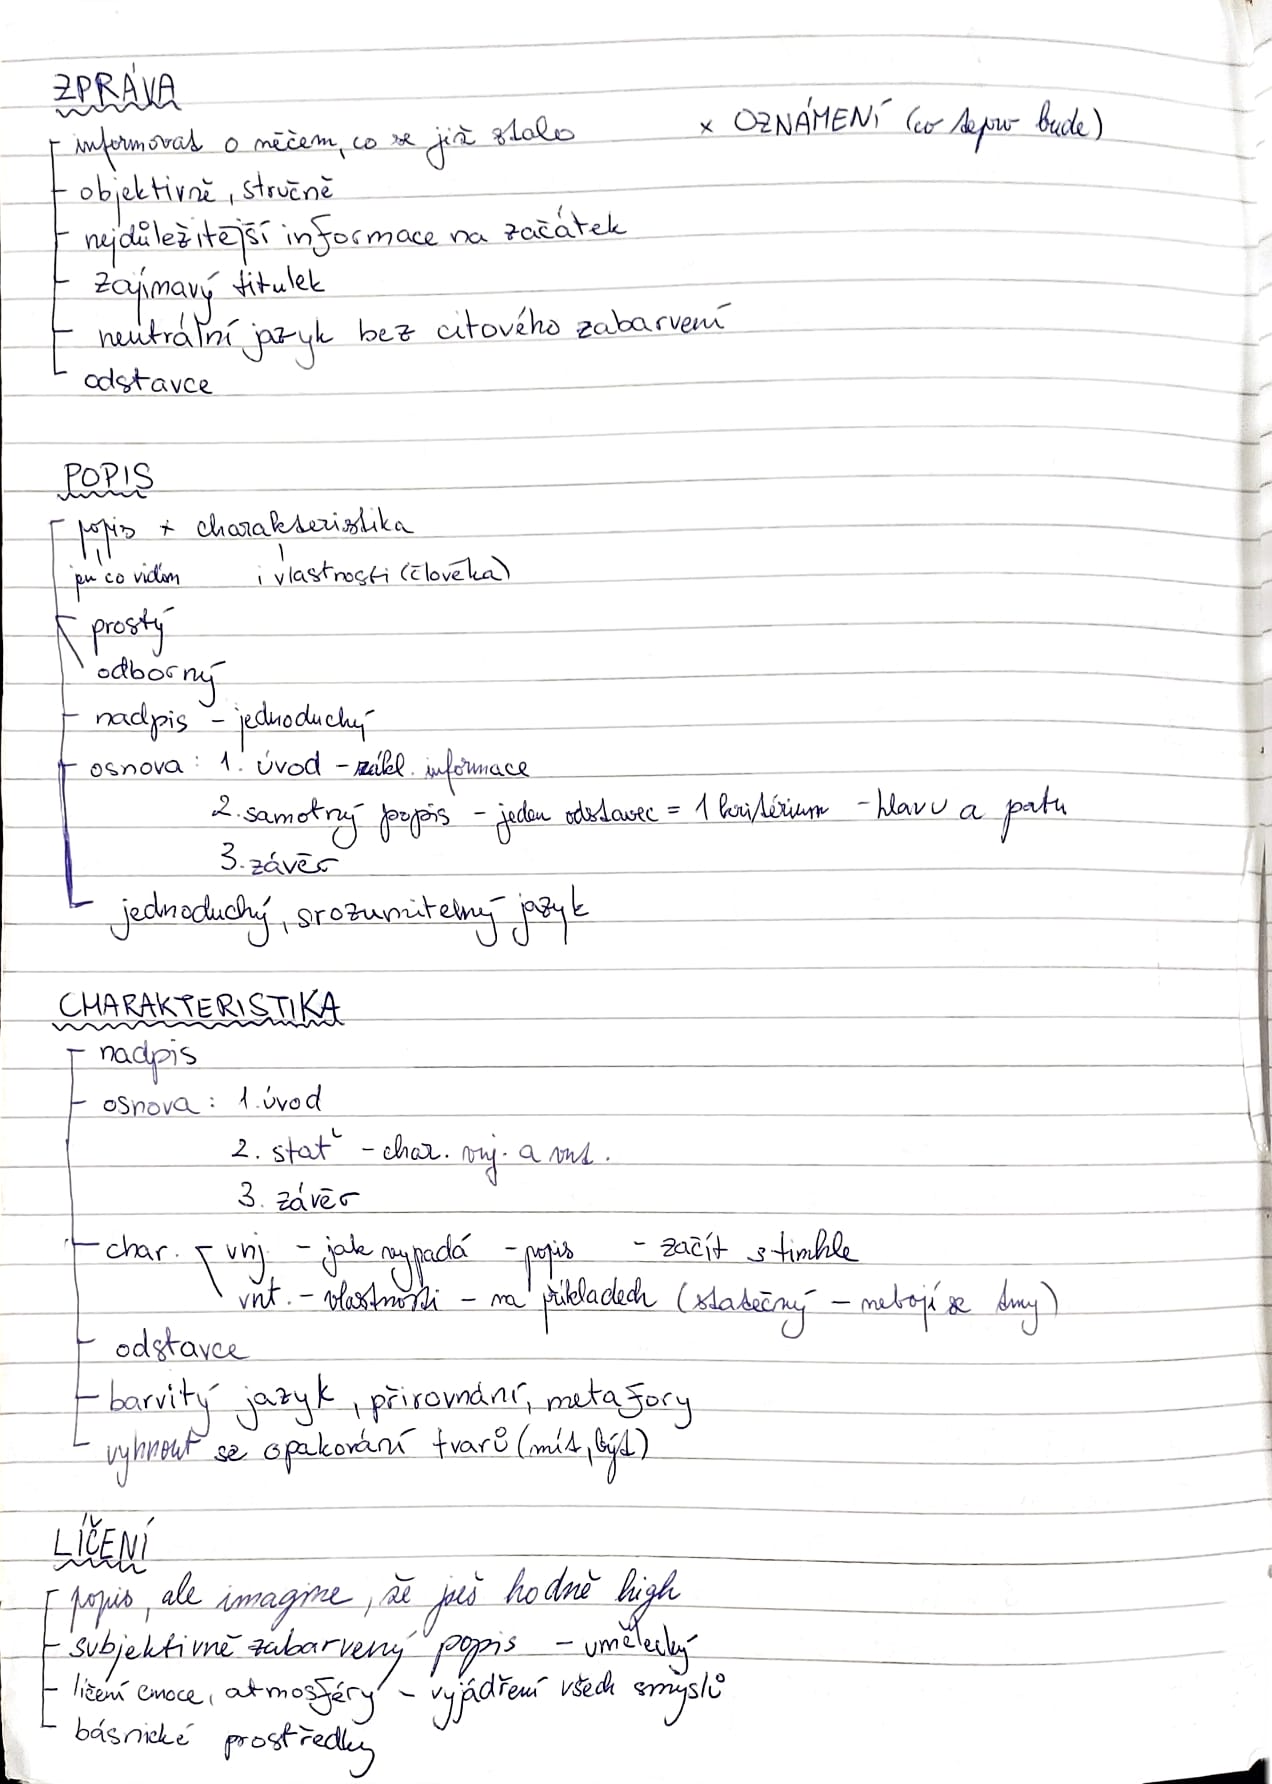 ZPRÁVA
informovat o něčem, co se již stalo × OZNÁMENÍ (co teprv bude)
objektivně, stručně
nejdůležitější informace na začátek
zajímavý titulek
neutrální jazyk bez citového zabarvení
odstavce
POPIS
popis × charakteristika
jen co vidím i vlastnosti (člověka)
prostý
odborný
nadpis - jednoduchý
osnova: 1. úvod - zákl. informace
2. samotný popis - jeden odstavec = 1 kritérium - hlavu a patu
3. závěr
jednoduchý, srozumitelný jazyk
CHARAKTERISTIKA
nadpis
osnova: 1. úvod
2. stať - char. vnj. a vnt.
3. závěr
char. vnj. - jak vypadá - popis - začít s tímhle
vnt. - vlastnosti - na příkladech (statečný - nebojí se tmy)
odstavce
barvitý jazyk, přirovnání, metafory
vyhnout se opakování tvarů (mít, být)
LÍČENÍ
popis, ale imagine, že jseš hodně high
subjektivně zabarvený popis - umělecký
líčení emoce, atmosféry - vyjádření všech smyslů
básnické prostředky